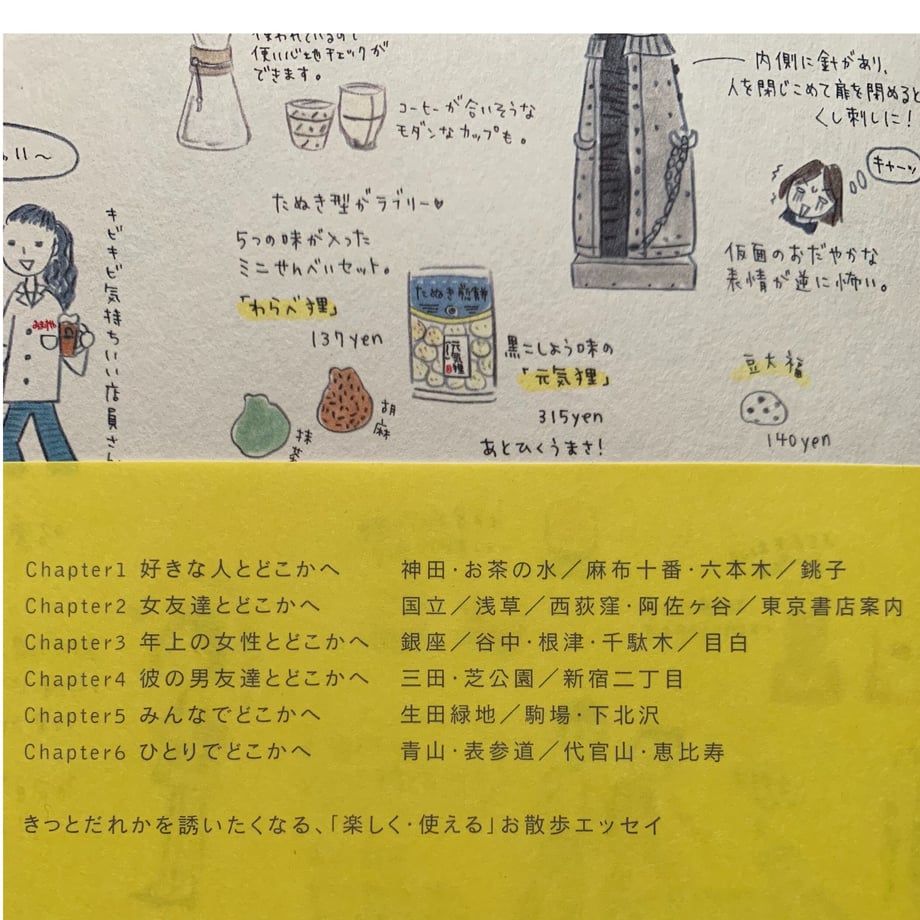 使われているので
使い心地チェックが
できます。
コーヒーが合いそうな
モダンなカップも。
内側に針があり、
人を閉じこめて扉を閉めると
くし刺しに!
キャーッ
仮面のおだやかな
表情が逆に怖い。
キビキビ気持ちいい店員さん
たぬき型がラブリー♥
5つの味が入った
ミニせんべいセット。
「わらべ狸」
137yen
抹茶
胡麻
元気狸
黒こしょう味の
「元気狸」
315yen
あとひくうまさ!
豆大福
140yen
Chapter1 好きな人とどこかへ 神田・お茶の水/麻布十番・六本木/銚子
Chapter2 女友達とどこかへ 国立/浅草/西荻窪・阿佐ヶ谷/東京書店案内
Chapter3 年上の女性とどこかへ 銀座/谷中・根津・千駄木/目白
Chapter4 彼の男友達とどこかへ 三田・芝公園/新宿二丁目
Chapter5 みんなでどこかへ 生田緑地/駒場・下北沢
Chapter6 ひとりでどこかへ 青山・表参道/代官山・恵比寿
きっとだれかを誘いたくなる、「楽しく・使える」お散歩エッセイ